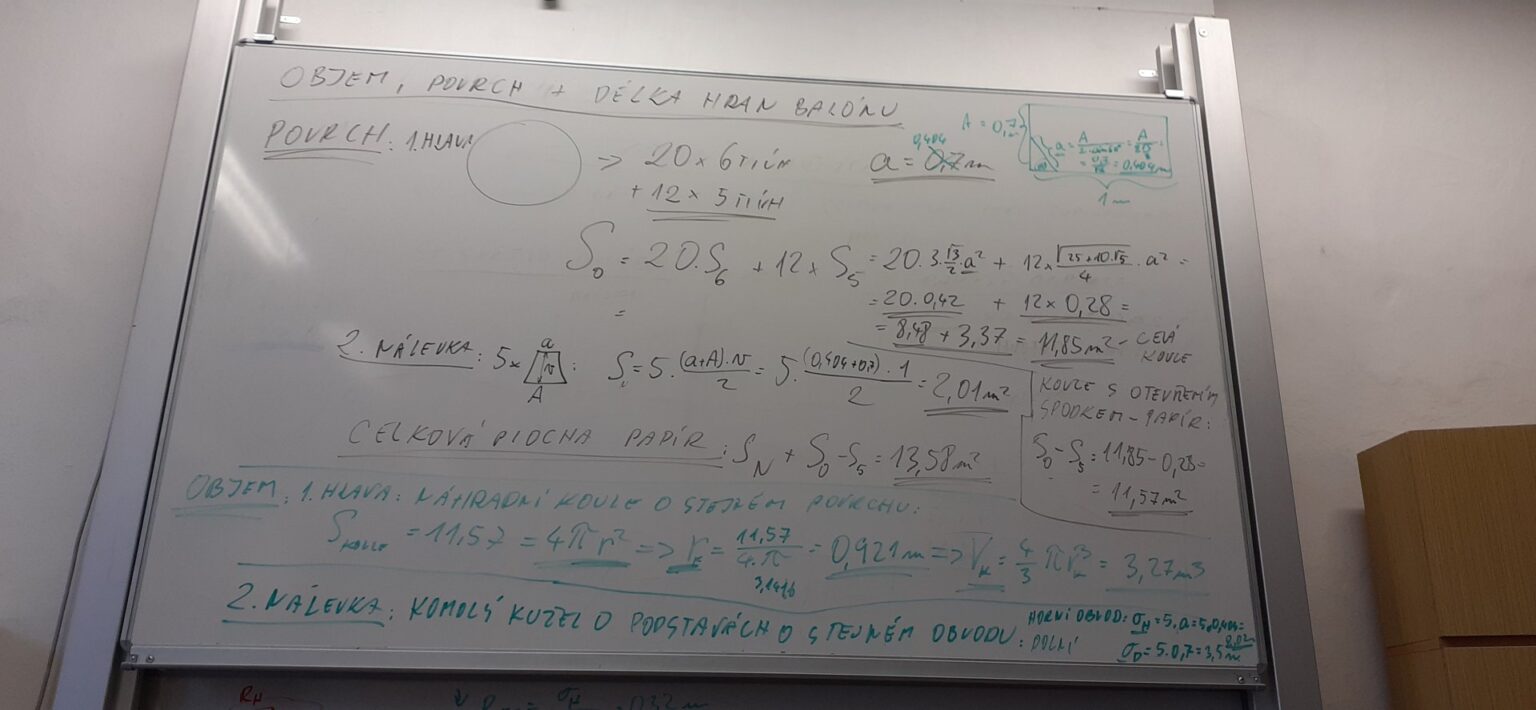 OBJEM, POVRCH + DÉLKA HRAN BALÓNU
POVRCH: 1. HLAVA
=> 20 × 6TIÚH
+ 12 × 5TIÚH
a = 0,7m
0,404
A = 0,7m
a = A
= 0,404m
1m
S₀ = 20.S₆ + 12 × S₅ = 20.3.√3/2.a² + 12×√(25+10.√5)/4.a² =
=
= 20.0,42 + 12×0,28 =
= 8,48 + 3,37 = 11,85m² - CELÁ KOULE
2. NÁLEVKA: 5× a v A : S = 5.(a+A).v/2 = 5.(0,404+0,7).1/2 = 2,01m²
KOULE S OTEVŘENÍM
SPODKEM - PAPÍR:
S₀-S₅ = 11,85-0,28=
= 11,57m²
CELKOVÁ PLOCHA PAPÍR: S_N + S₀-S₅ = 13,58m²
OBJEM: 1. HLAVA: NÁHRADNÍ KOULE O STEJNÉM POVRCHU:
S_KOULE = 11,57 = 4πr² => r_K = 11,57/4.π = 0,921m => V_K = 4/3 πr_K³ = 3,27m³
3,1416
2. NÁLEVKA: KOMOLÝ KUŽEL O PODSTAVÁCH O STEJNÉM OBVODU:
HORNÍ OBVOD: σ_H = 5.a = 5.0,404=
2,02
DOLNÍ σ_D = 5.0,7 = 3,5m
R_H